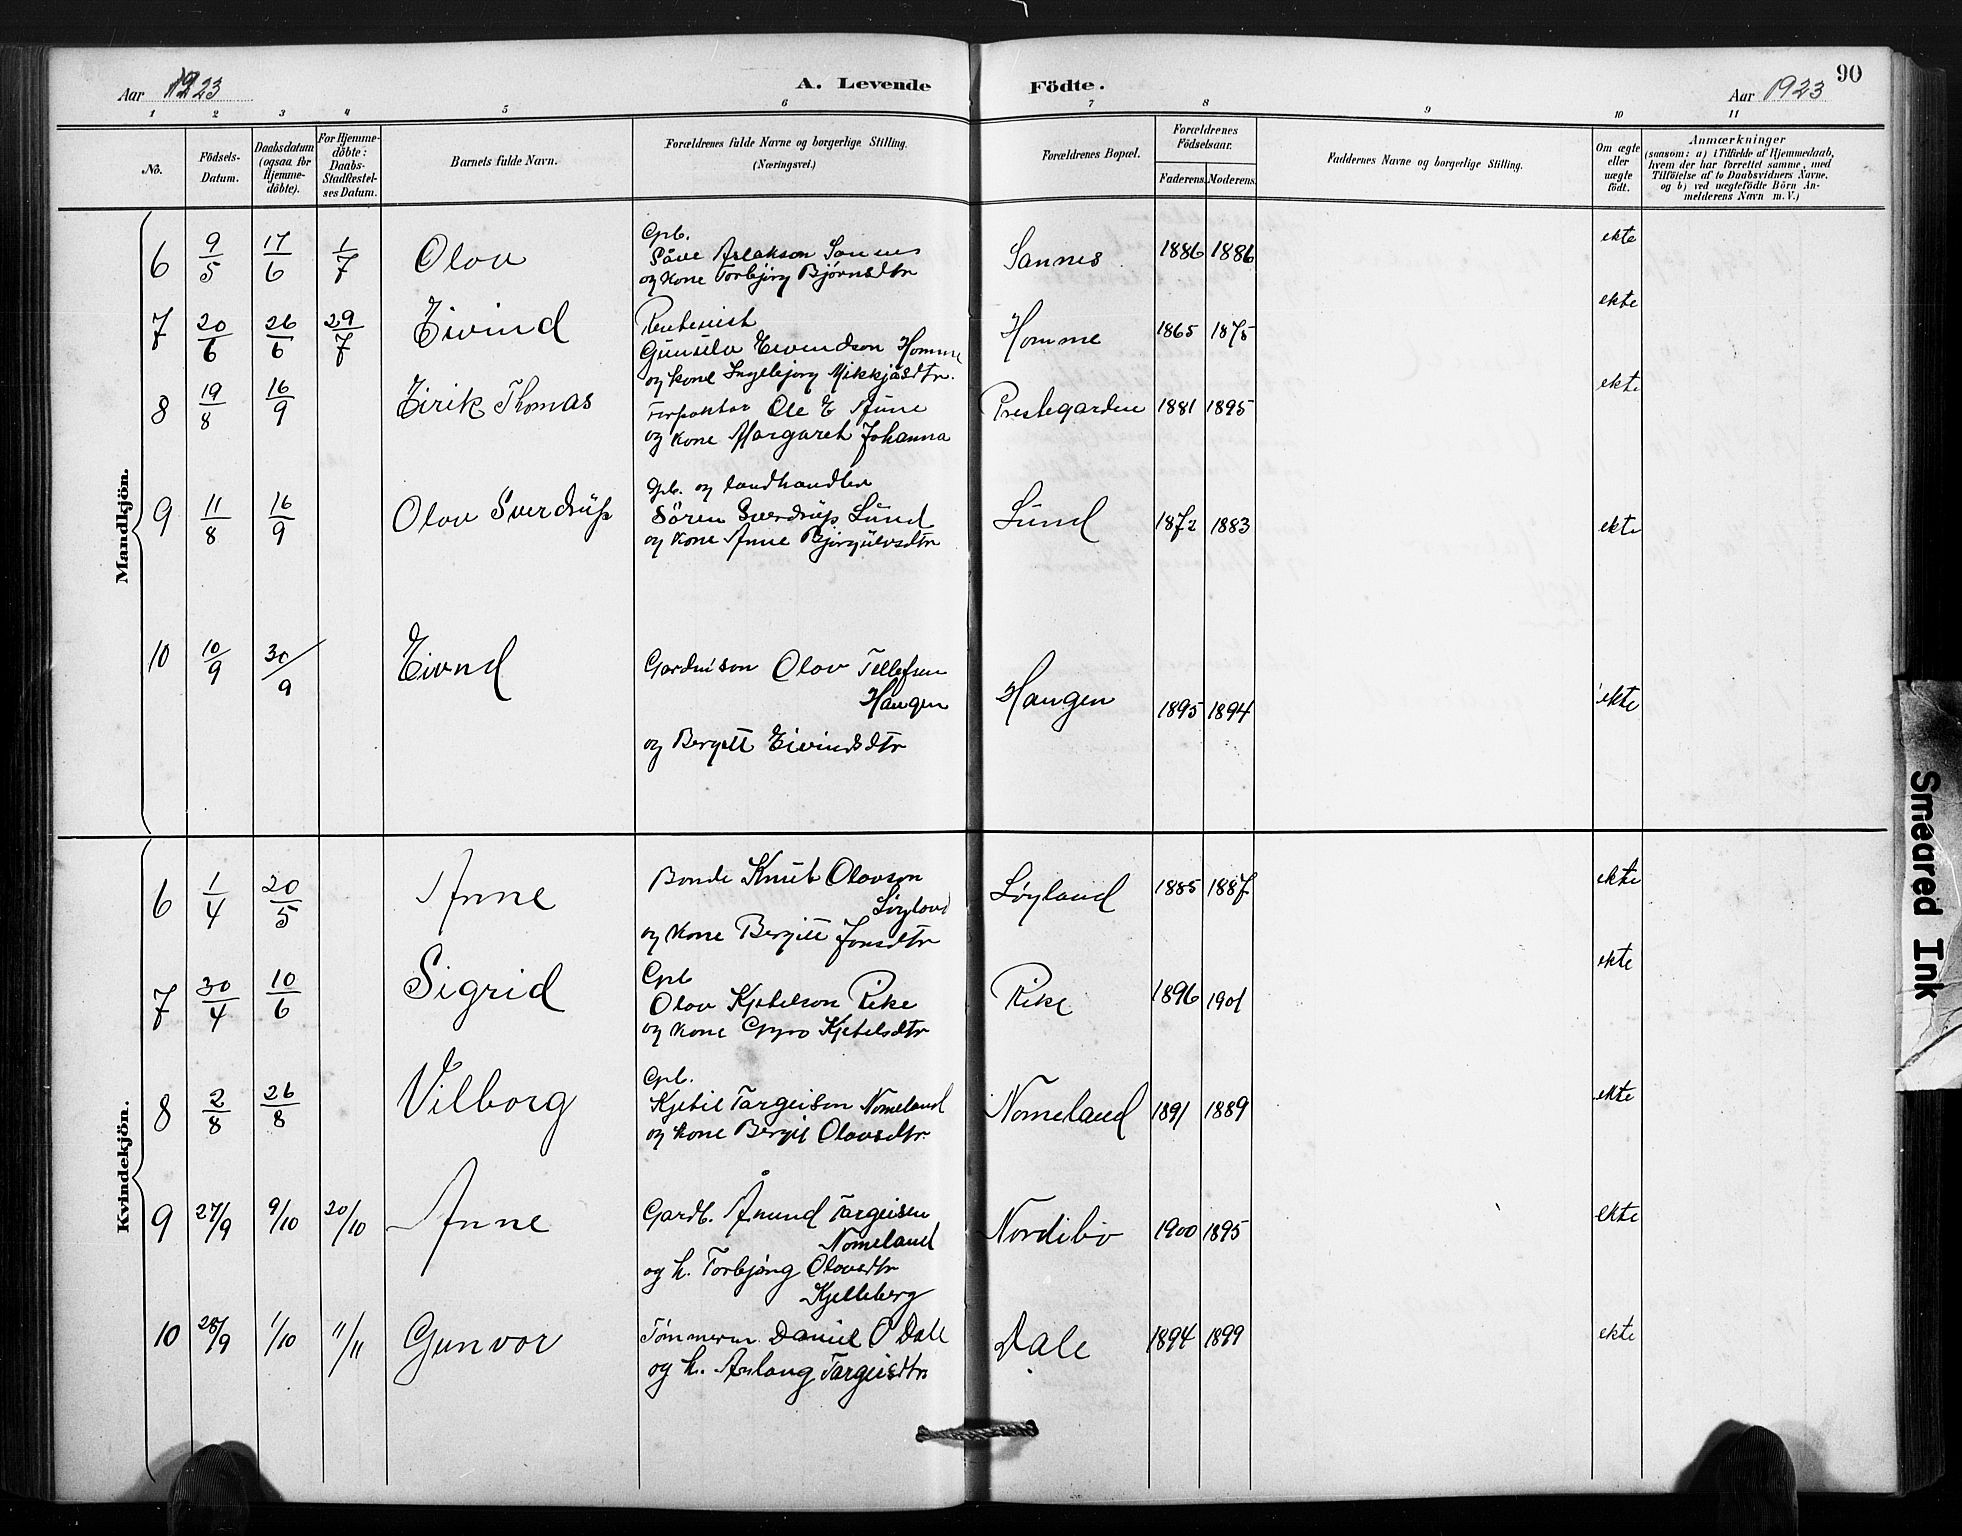 Aar 1923
A. Levende Födte.
90
Aar 1923
1 2 3 4 5 6 7 8 9 10 11
No.
Födsels-
Datum.
Daabsdatum
(ogsaa for
Hjemme-
döbte).
For Hjemme-
döbte:
Daabs-
Stadfæstel-
ses Datum.
Barnets fulde Navn.
Forældrenes fulde Navne og borgerlige Stilling.
(Næringsvei.)
Forældrenes Bopæl.
Forældrenes
Födselsaar.
Faderens. Moderens.
Faddernes Navne og borgerlige Stilling.
Om ægte
eller
uægte
födt.
Anmærkninger
(saasom: a) i Tilfælde af Hjemmedaab,
hvem der har forrettet samme, med
Tilföielse af to Daabsvidners Navne,
og b) ved uægtefödte Börn An-
melderens Navn m. V.)
Mandkjön.
6 9/5 17/6 1/7 Olov
Gpb.
Såve Aslakson Sannes
og kone Torbjørg Bjørnsdtr
Sannes 1886 1886 ekte
7 20/6 26/6 29/7 Eivind
Rentenist
Gunulv Eivendson Homme
og kone Ingebjørg Mikkjåsdtr.
Homme 1865 1875 ekte
8 19/8 16/9 Eirik Thomas
Forpaktar Ole E Aune
og kone Margaret Johanna
Prestegarden 1881 1895 ekte
9 11/8 16/9 Olov Sverdrup
Gpb. og landhandler
Sören Sverdrup Lund
og kone Anne Bjorgulvsdtr
Lund 1872 1883 ekte
10 10/9 30/9 Eivnd
Gardmison Olov Tellefsen
Haugen
og Bergitt Eivindsdtr
Haugen 1895 1894 ekte
Kvindekjön.
6 1/4 20/5 Anne
Bonde Knut Olovson
Løyland
og kone Bergitt Jonsdtr
Løyland 1885 1887 ekte
7 30/4 10/6 Sigrid
Gpb
Olov Kjetelson Rike
og kone Gyro Kjetelsdtr
Rike 1896 1901 ekte
8 2/8 26/8 Vilborg
Gpb.
Kjetil Targeison Nomeland
og kone Bergit Olovsdtr
Nomeland 1891 1889 ekte
9 27/9 9/10 20/10 Anne
Gardb. Åmund Targeisen
Nomeland
og h. Torbjørg Olovsdtr
Kjelleberg
Nordibø 1900 1895 ekte
10 28/9 1/10 11/11 Gunvor
Tømmerm. Daniel O Dale
og h. Aslaug Targeisdtr
Dale 1894 1899 ekte
Smeared Ink